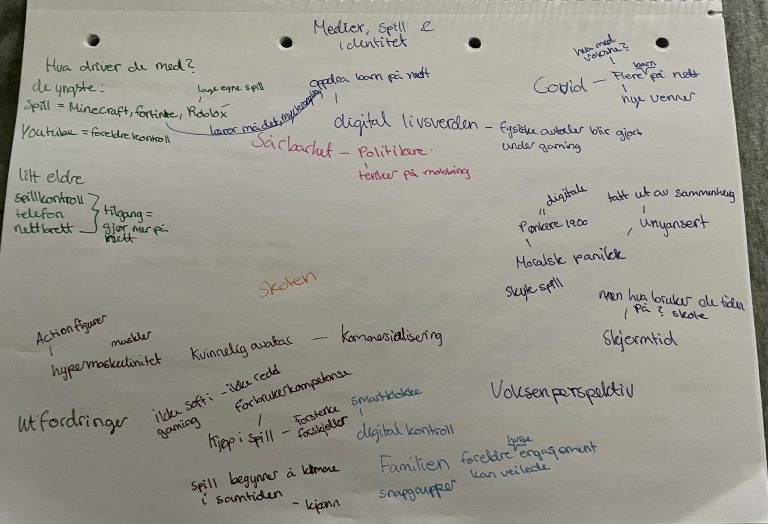 Medier, Spill &
identitet
Hva driver de med?
de yngste:
lage egne spill
Spill = Minecraft, fortinte, Roblox
Youtube = foreldrekontroll
lærer må det, mye
oppdra barn på nett
digital livsverden - fysiske avtaler blir gjort
under gaming
hva med
voksne?
barn
Covid - Flere på nett
nye venner
Sårbarhet - Politikere
tenker på mobbing
litt eldre
spillkontroll
telefon
nettbrett
tilgang =
gjør mer på
nett
digitale
Pønkere 1900
Moralsk panikk
skyte spill
tatt ut av sammenheng
Unyansert
Skolen
men hva bruker de tiden
på? skole
Skjermtid
Actionfigurer
muskler
hypermaskulinitet
Kvinnelig avatar - Kommersialisering
Voksenperspektiv
Utfordringer
ikke soft i - ikke redd
gaming
forbrukerkompetanse
Kjøp i spill - Forsterke
forskjeller
smartklokke
digital kontroll
spill begynner å komme
i samtiden
- kjønn
Familien
snapgrupper
foreldre engagement
kan veilede